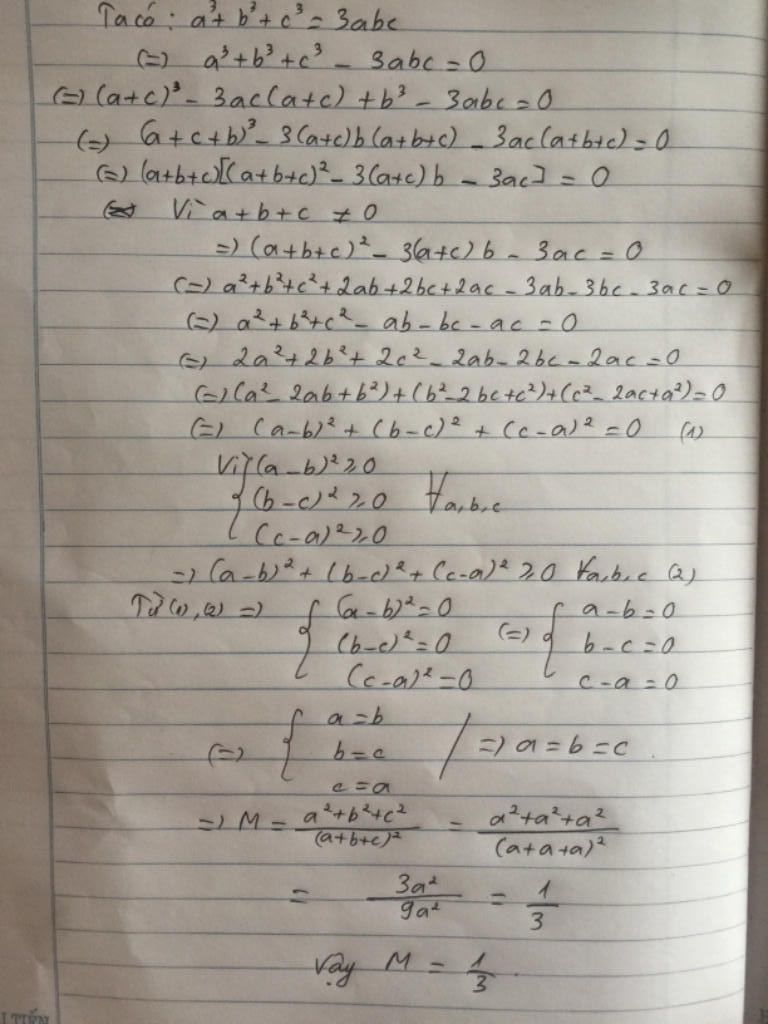 Ta có : a³ + b³ + c³ = 3abc
(=) a³ + b³ + c³ - 3abc = 0
(=) (a+c)³ - 3ac(a+c) + b³ - 3abc = 0
(=) (a+c+b)³ - 3(a+c)b(a+b+c) - 3ac(a+b+c) = 0
(=) (a+b+c)[(a+b+c)² - 3(a+c)b - 3ac] = 0
Vì a + b + c ≠ 0
=) (a+b+c)² - 3(a+c)b - 3ac = 0
(=) a² + b² + c² + 2ab + 2bc + 2ac - 3ab - 3bc - 3ac = 0
(=) a² + b² + c² - ab - bc - ac = 0
(=) 2a² + 2b² + 2c² - 2ab - 2bc - 2ac = 0
(=) (a² - 2ab + b²) + (b² - 2bc + c²) + (c² - 2ac + a²) = 0
(=) (a-b)² + (b-c)² + (c-a)² = 0 (1)
Vì { (a-b)² ≥ 0
(b-c)² ≥ 0 ∀a,b,c
(c-a)² ≥ 0
=) (a-b)² + (b-c)² + (c-a)² ≥ 0 ∀a,b,c (2)
Từ (1), (2) =) { (a-b)² = 0 (=) { a-b = 0
(b-c)² = 0 b-c = 0
(c-a)² = 0 c-a = 0
(=) { a = b
b = c / =) a = b = c.
c = a
=) M = (a² + b² + c²)/(a+b+c)² = (a² + a² + a²)/(a+a+a)²
= 3a²/9a² = 1/3
Vậy M = 1/3.
I TIẾN